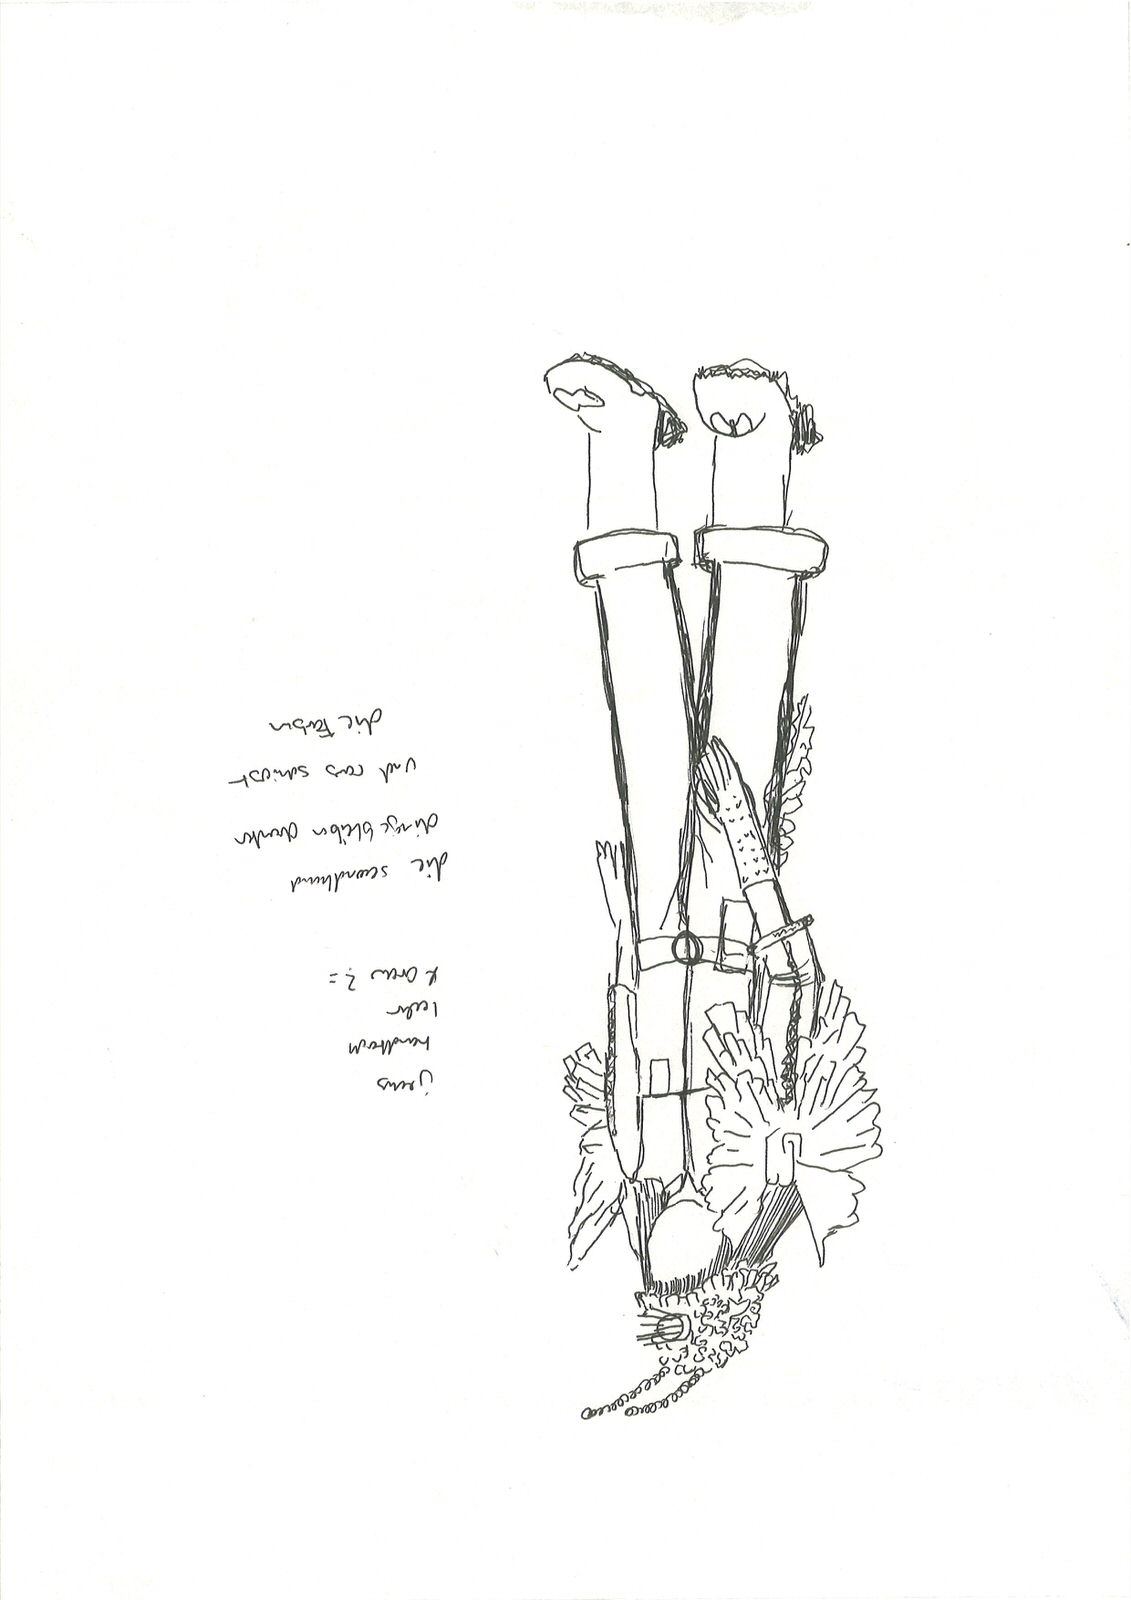 jeans
leder
& crew ? =
die secondhand
dinge bleiben dunkel
und raus schiesst
die Farben